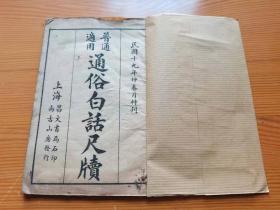 民國十九年仲春月付刊
普通
適用
通俗白話尺牘
上海
昌文書局石印
尚古山房發行